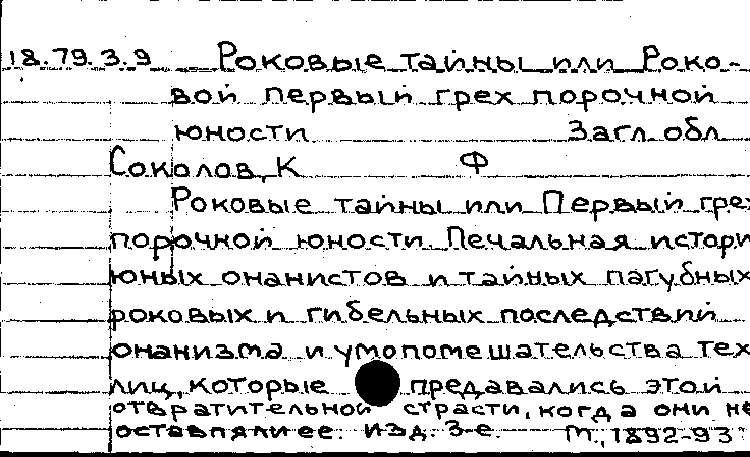 18.79.3.9 Роковые тайны или Роко-
вой первый грех порочной
юности Загл. обл
Соколов, К Ф
Роковые тайны или Первый грех
порочной юности Печальная истори
юных онанистов и тайных пагубных
роковых и гибельных последствий
онанизма и умопомешательства тех
лиц, которые предавались этой
отвратительной страсти, когда они не
оставляли ее. изд. 3-е. М., 1892-93